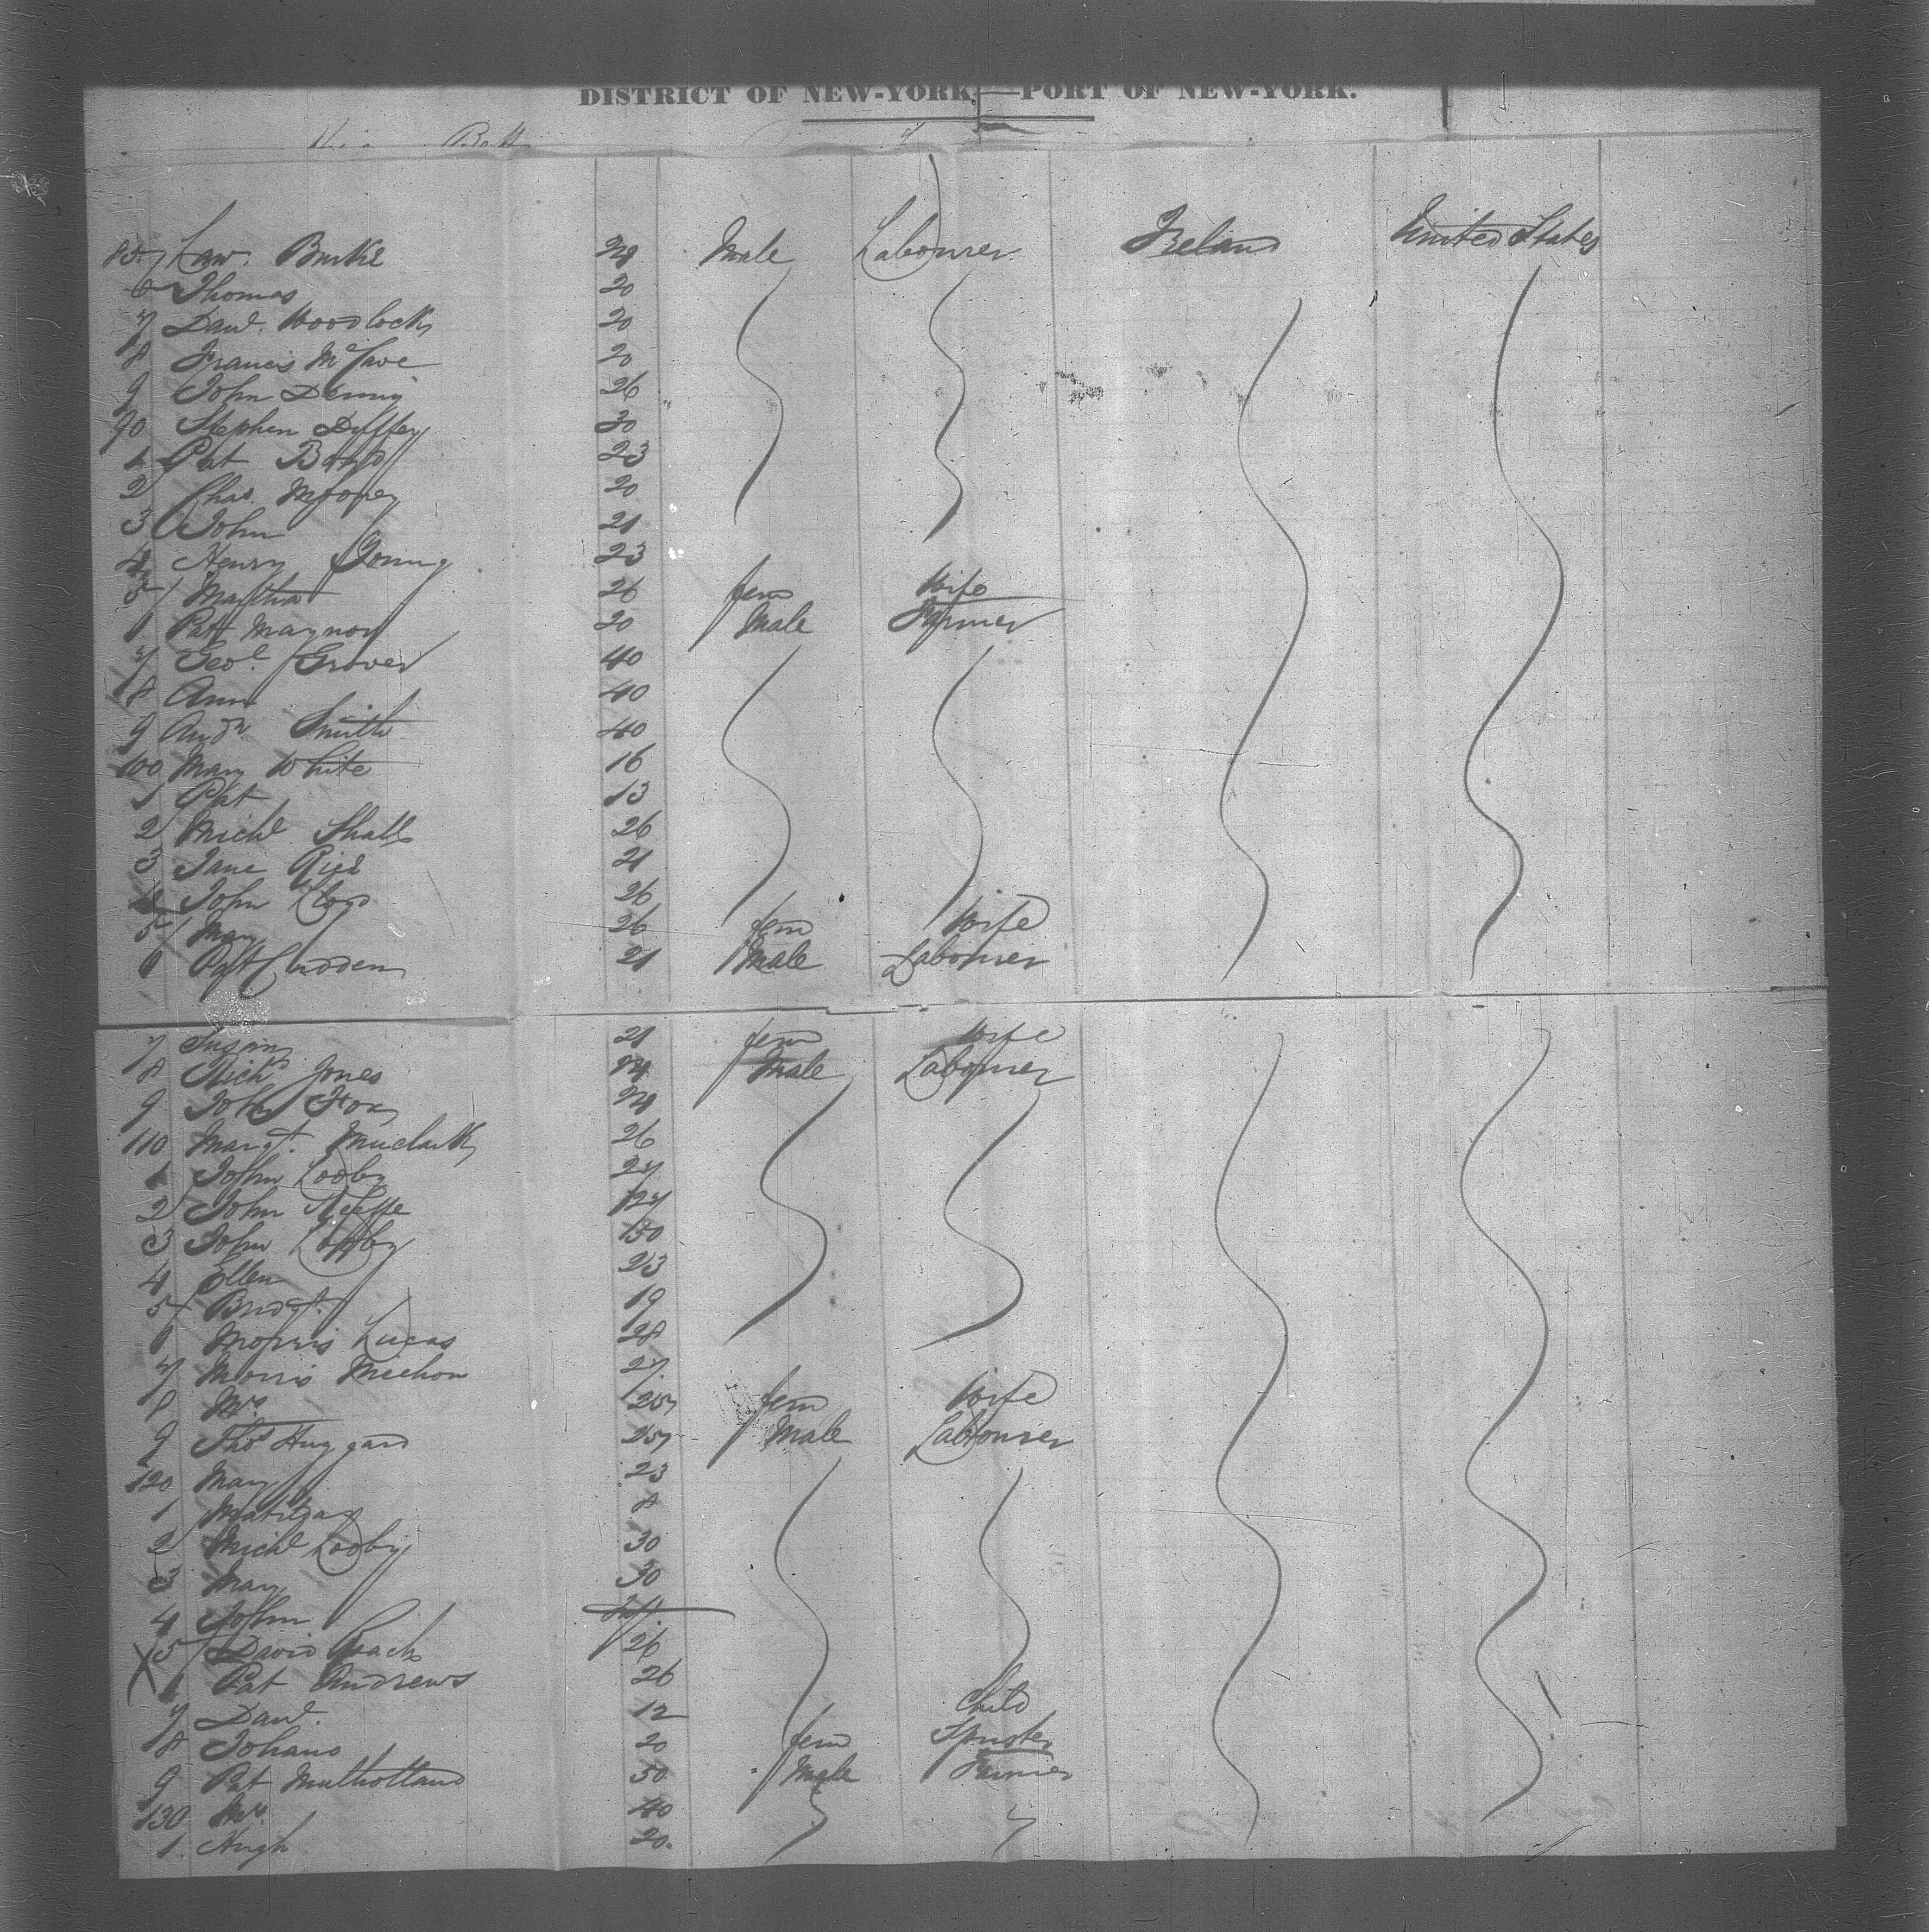 DISTRICT OF NEW-YORK—PORT OF NEW-YORK.
85 Law. Burke 24 Male Labourer Ireland United States
6 Thomas 20
7 Danl. Woodlock 20
8 Francis McCave 20
9 John Denny 26
90 Stephen Duffey 30
1 Pat Boyd 23
2 Chas. Mooney 20
3 John 21
4 Henry Young 23
5 Martha 26 fem Wife
6 Patt Maynor 20 Male Farmer
7 Geo. Grover 40
8 Ann 40
9 Andw. Smith 40
100 Mary White 16
1 Pat 13
2 Michl Shall 26
3 Jane Ried 21
4 John Cloyd 26
5 Mary 26 fem Wife
6 Pat Cudden 21 Male Labourer
7 Susan 21 fem Wife
8 Richd Jones 24 Male Labourer
9 John Fox 24
110 Margt. 26
1 John Looby 27
2 John Keeffe 27
3 John Looby 30
4 Ellen 23
5 Bridgt. 19
6 Morris Lucas 28
7 Morris Meehon 27
8 Mrs 25 fem Wife
9 Thos Huggard 25 Male Labourer
120 Mary 23
1 Matilda 8
2 Michl Looby 30
3 Mary 30
4 John Inft.
5 David Roach 26
6 Pat Andrews 26
7 Danl. 12 Child
8 Johana 20 fem Spinster
9 Pat Mulholland 50 Male Farmer
130 Mrs. 40
1 Hugh 20